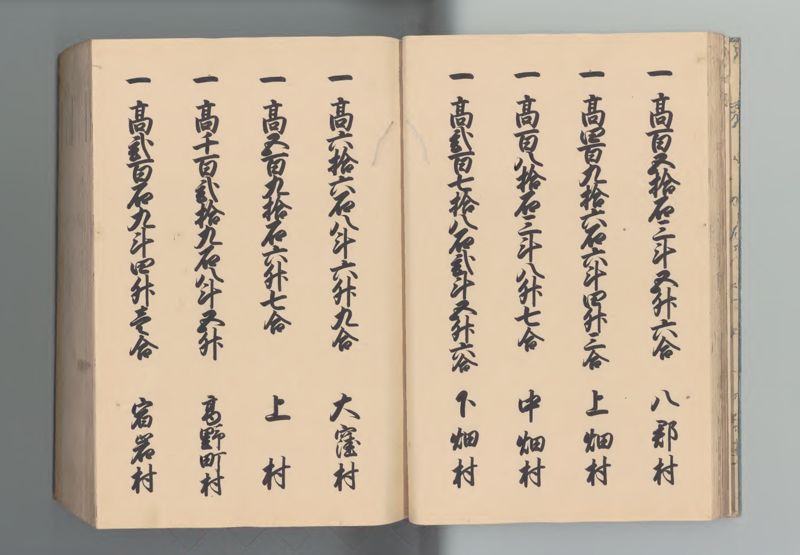 一 高百五拾石三斗五升六合 八郡村
一 高四百九拾六石六斗四升三合 上畑村
一 高百八拾石三斗八升七合 中畑村
一 高貳百七拾八石貳斗五升六合 下畑村
一 高六拾六石八斗六升九合 大窪村
一 高五百九拾石六升七合 上村
一 高千百貳拾九石八斗五升 高野町村
一 高貳百石九斗四升壱合 宿岩村